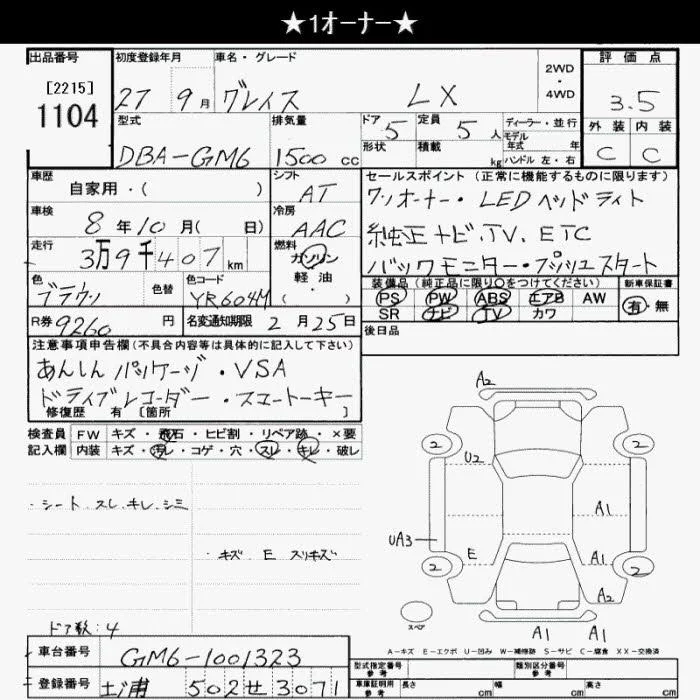 ★1オーナー★
出品番号
[2215]
1104
初度登録年月
27 9月
車名・グレード
グレイス LX
2WD
・
4WD
評価点
3.5
外装 内装
C C
型式
DBA-GM6
排気量
1500cc
ドア 5
定員 5人
形状
積載 kg
ディーラー・並行
モデル年式 年式
ハンドル 左・右
車歴
自家用・( )
シフト
AT
車検
8年10月( 日)
冷房
AAC
走行
3万9千407km
燃料
ガソリン
軽・油
( )
色
ブラウン
色替
色コード
YR604M
R券 9260円
名変通知期限 2月25日
セールスポイント(正常に機能するものに限ります)
ワンオーナー・LEDヘッドライト
純正ナビ.TV.ETC
バックモニター・プッシュスタート
装備品(純正品に限り○をつけてください)
PS PW ABS エアB AW
SR ナビ TV カワ
新車保証書
有・無
後日品
注意事項申告欄(不具合内容等は具体的に記入して下さい)
あんしんパッケージ・VSA
ドライブレコーダー・スマートキー
修復歴 有[箇所 ]
検査員記入欄
FW キズ・飛石・ヒビ割・リペア跡・×要
内装 キズ・汚レ・コゲ・穴・スレ・キレ・破レ
・シート.スレ.キレ.シミ
・キズ E スリキズ
ドア数:4
車台番号 GM6-1001323
登録番号 土浦 502せ3071
A2
2 2
U2
A1
UA3
E A1
2 2
A2
スペア
A1 A1
A-キズ E-エクボ U-凹み W-補修跡 S-サビ C-腐食 XX-交換済
型式指定番号 参考
類別区分番号 参考
車庫証明用 参考 長さ cm 幅 cm 高さ cm